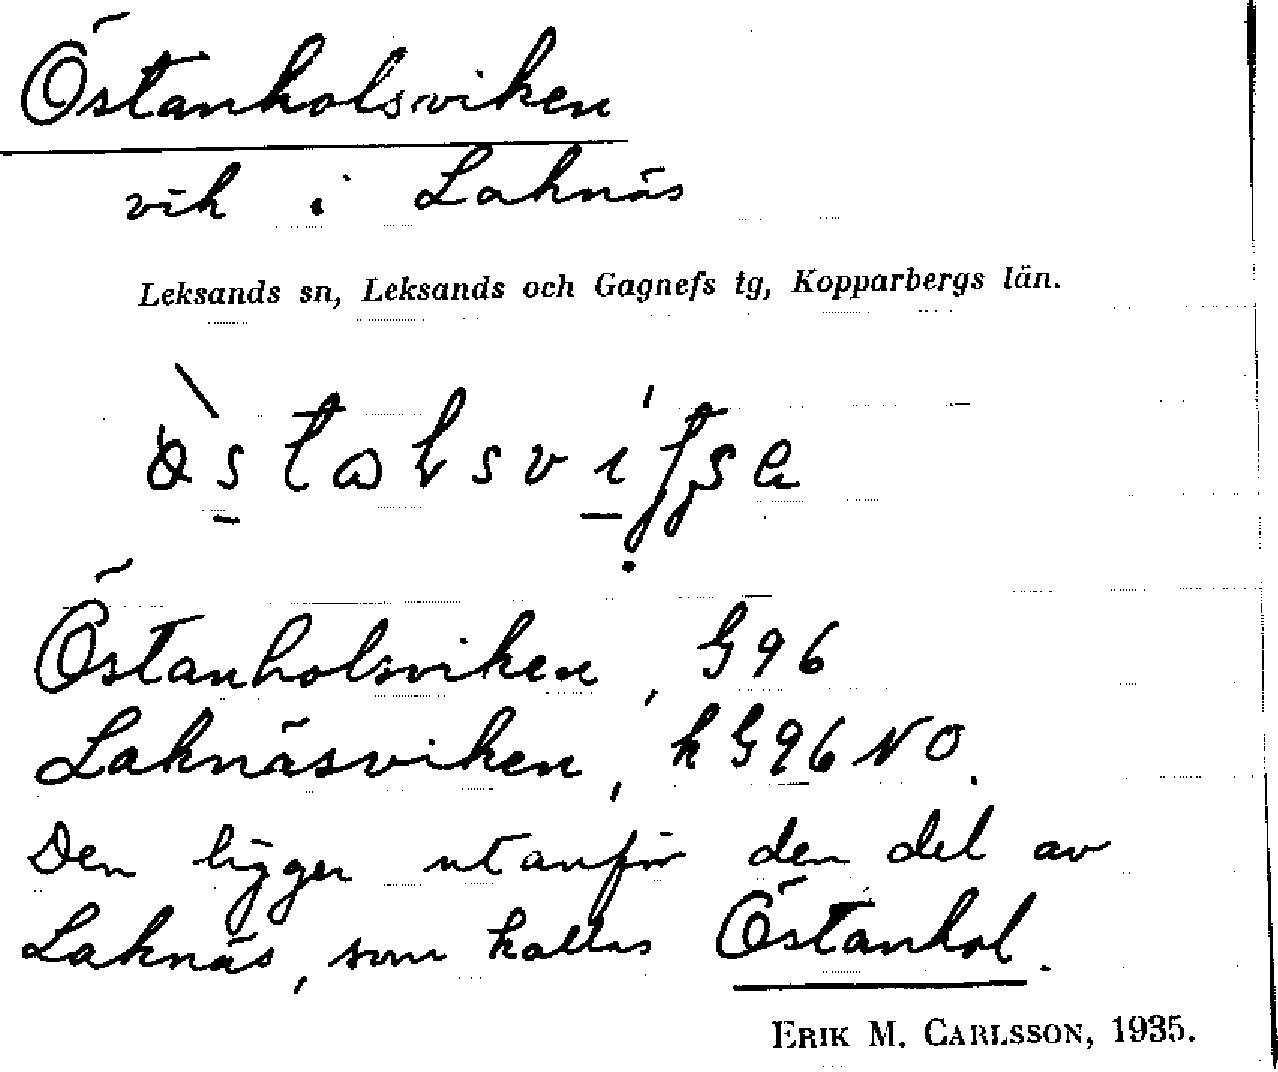 Östanholsviken
vik i Laknäs
Leksands sn, Leksands och Gagnefs tg, Kopparbergs län.
Östanholsviken, G96
Laknäsviken, k G96 NO.
Den ligger utanför den del av
Laknäs, som kallas Östanhol.
ERIK M. CARLSSON, 1935.